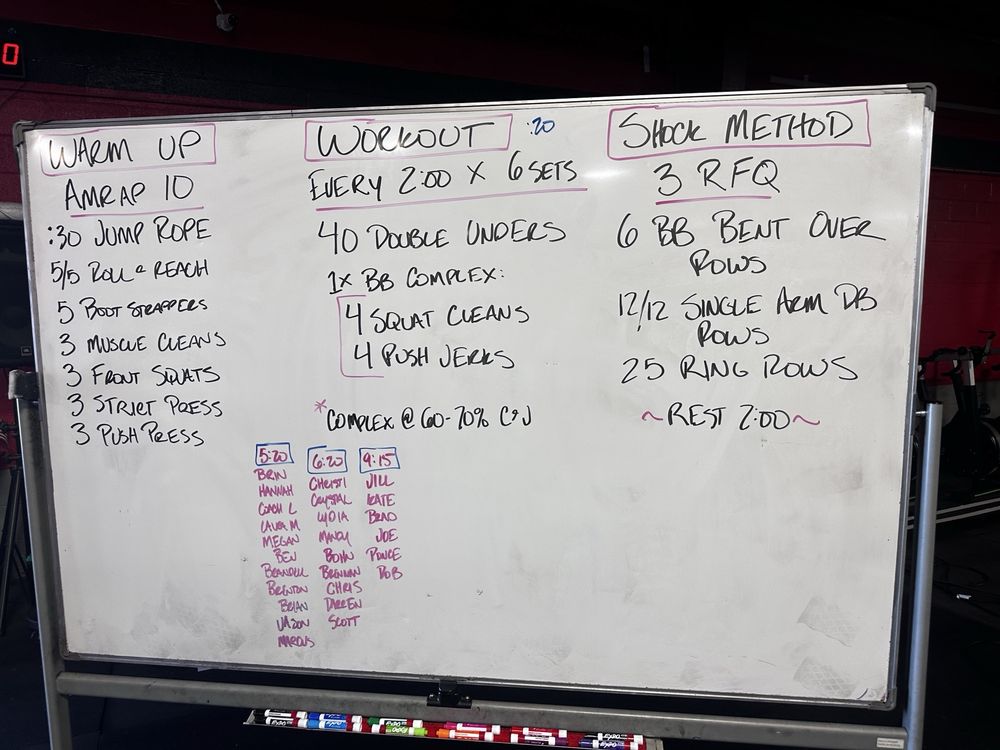 0
WARM UP
AMRAP 10
:30 JUMP ROPE
5/5 ROLL & REACH
5 BOOT STRAPPERS
3 MUSCLE CLEANS
3 FRONT SQUATS
3 STRICT PRESS
3 PUSH PRESS
WORKOUT :20
EVERY 2:00 X 6 SETS
40 DOUBLE UNDERS
1X BB COMPLEX:
4 SQUAT CLEANS
4 PUSH JERKS
*COMPLEX @ 60-70% C&J
5:20
BRIN
HANNAH
COACH L
LAURA M
MEGAN
BEN
BRANDELL
BRENTON
BRIAN
JASON
MARCUS
6:20
CHRISTI
CRYSTAL
LYDIA
MANDY
BOHN
BRENNAN
CHRIS
DARREN
SCOTT
9:15
JILL
KATE
BRAD
JOE
PONCE
ROB
SHOCK METHOD
3 RFQ
6 BB BENT OVER
ROWS
12/12 SINGLE ARM DB
ROWS
25 RING ROWS
~REST 2:00~
EXPO